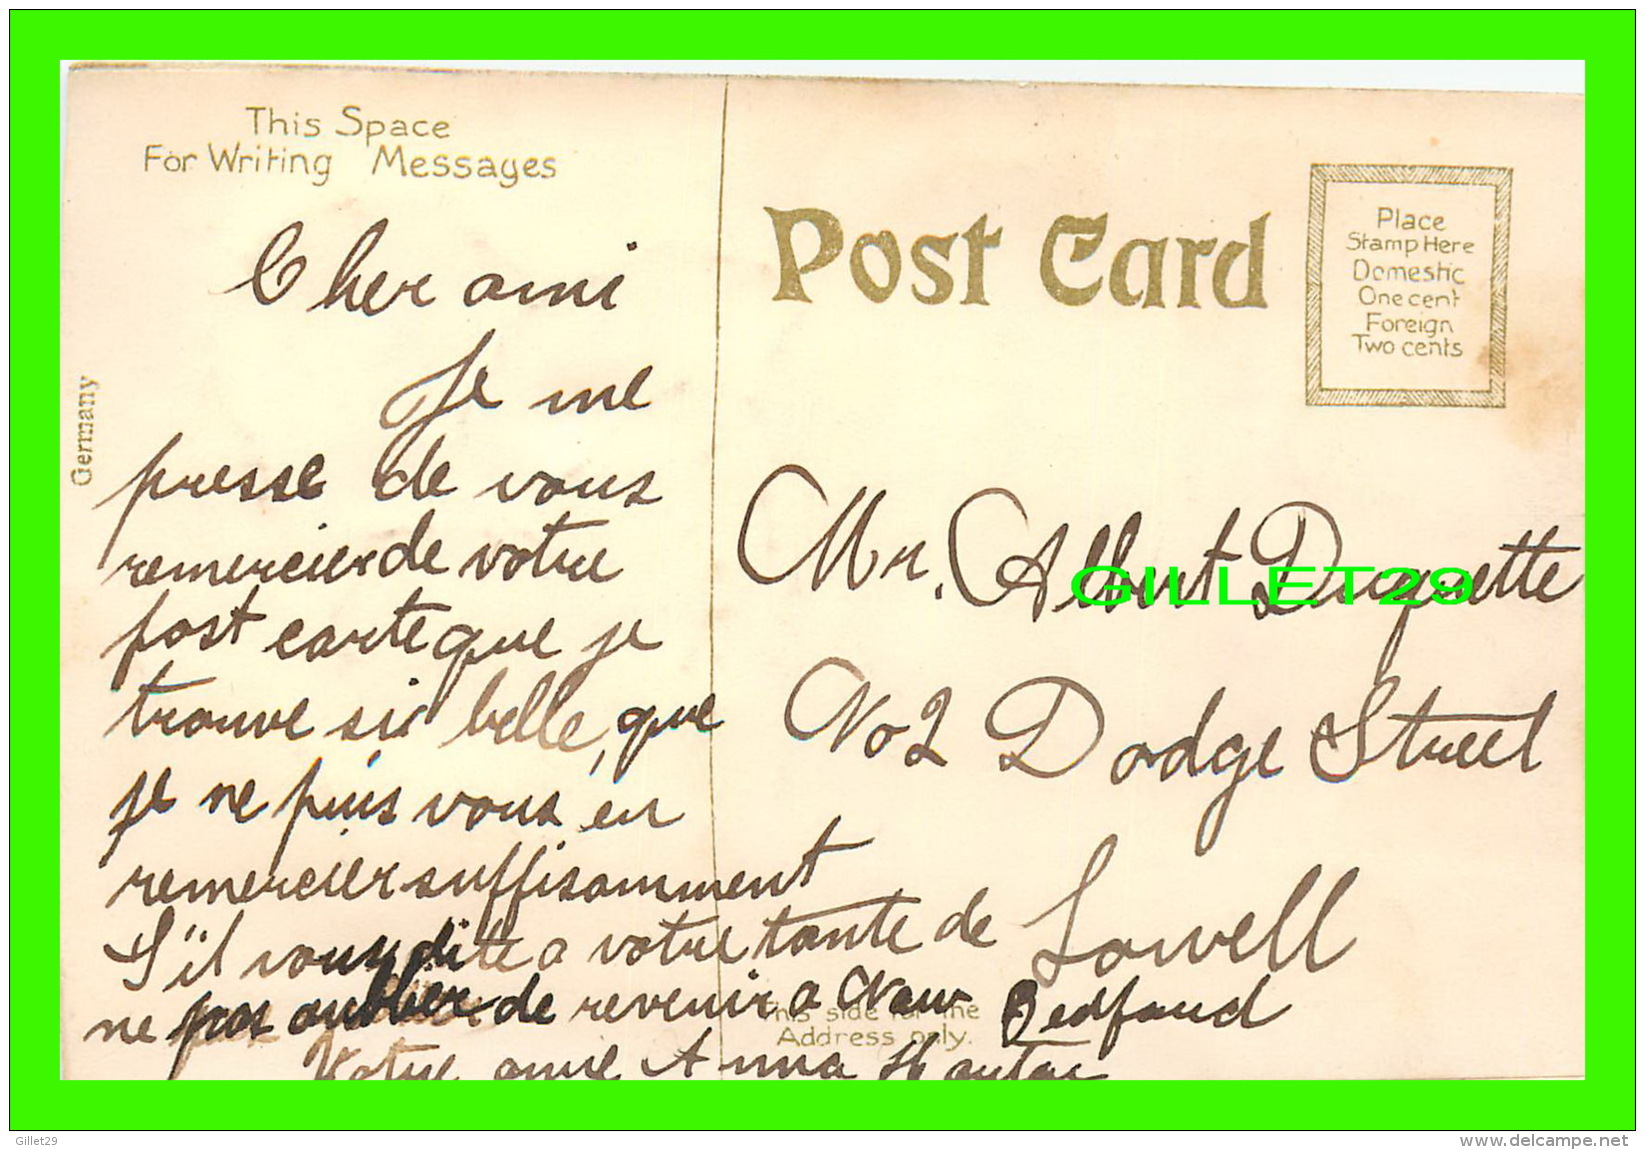 This Space
For Writing Messages
Cher ami
Je me
presse de vous
remercier de votre
post carte que je
trouve si belle, que
je ne puis vous en
remercier suffisamment
S'il vous dite a votre tante de
ne pas oublier de revenir a Naw Bedfaud
Votre amie Anna
Germany
Post Card
Place
Stamp Here
Domestic
One cent
Foreign
Two cents
Mr. Albert Duquette
GILLET29
No 2 Dodge Street
Lowell
This side for the
Address only.
Gillet29
www.delcampe.net